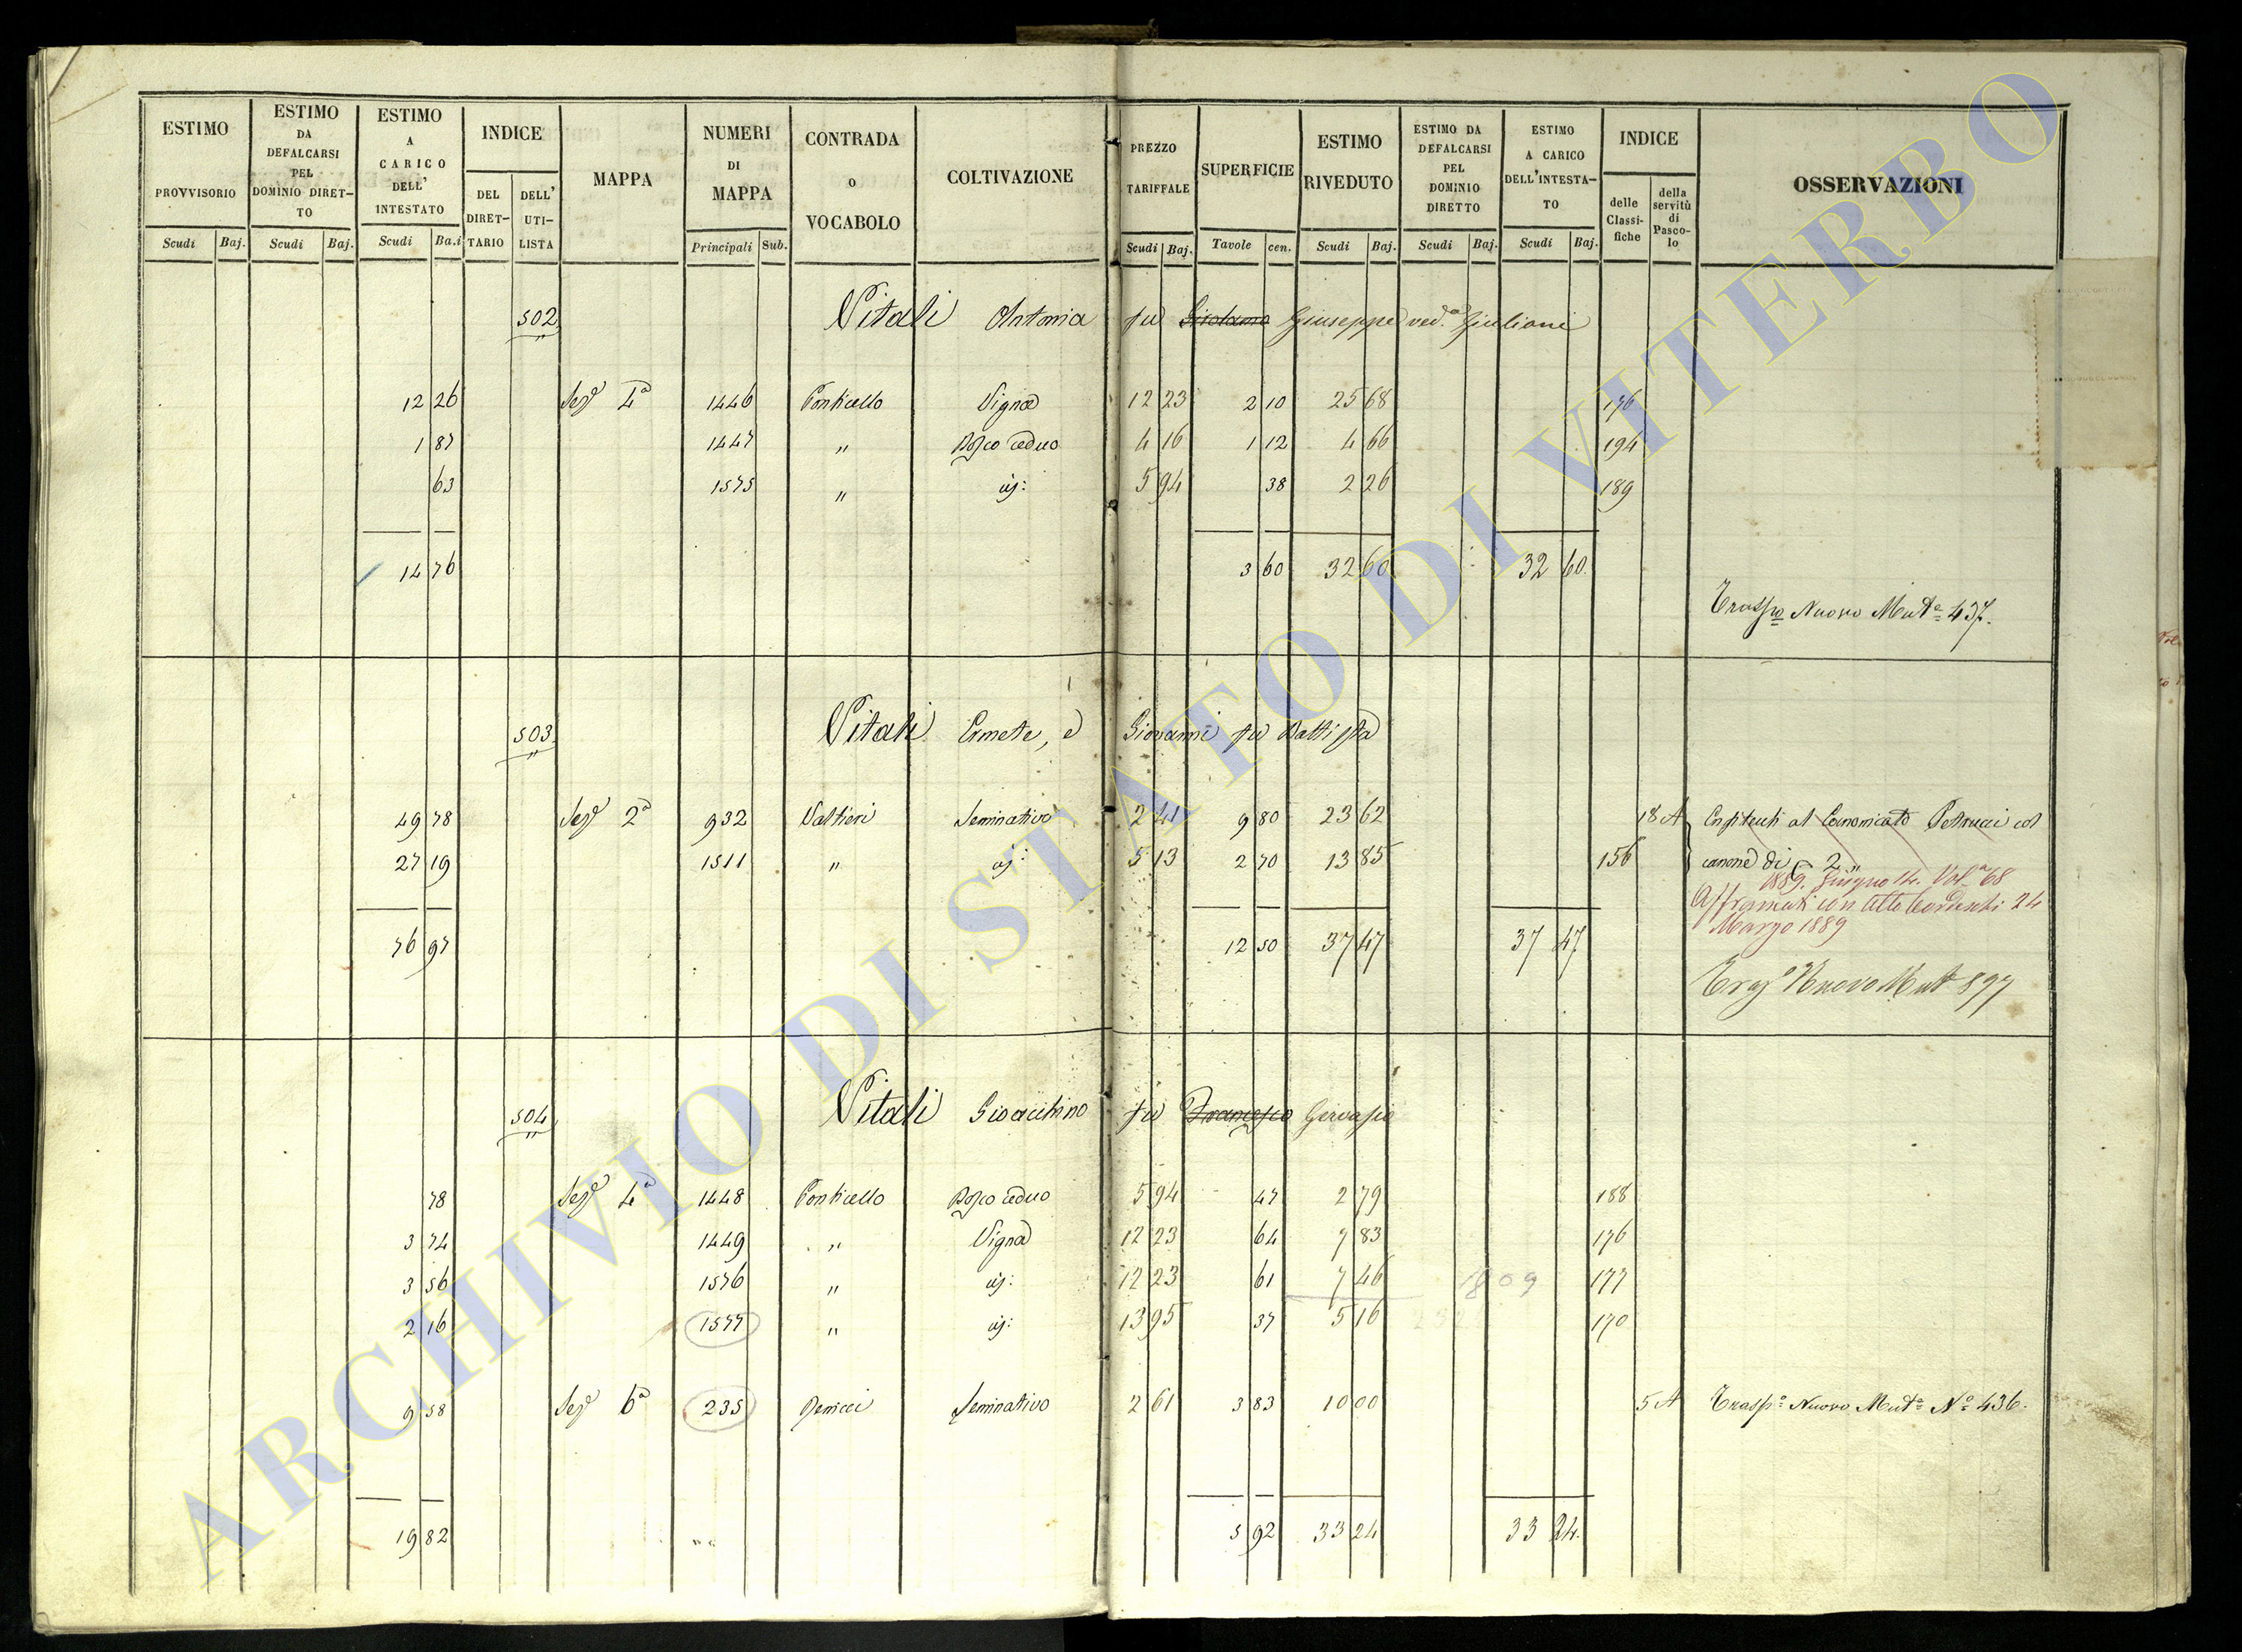 ESTIMO PROVVISORIO
ESTIMO DA DEFALCARSI PEL DOMINIO DIRET-TO
ESTIMO A CARICO DELL' INTESTATO
INDICE
DEL DIRET-TARIO
DELL' UTI-LISTA
MAPPA
NUMERI DI MAPPA
CONTRADA O VOCABOLO
COLTIVAZIONE
PREZZO TARIFFALE
SUPERFICIE
ESTIMO RIVEDUTO
ESTIMO DA DEFALCARSI PEL DOMINIO DIRETTO
ESTIMO A CARICO DELL'INTESTA-TO
INDICE
delle Classi-fiche
della servitù di Pasco-lo
OSSERVAZIONI
Scudi Baj. Scudi Baj. Scudi Ba.i Principali Sub. Scudi Baj. Tavole cen. Scudi Baj. Scudi Baj. Scudi Baj.
502 Vitali Antonia fu Girolamo Giuseppe ved.a Giuliani
12 26 Sez.e 4a 1446 Ponticello Vigna 12 23 2 10 25 68 176
1 87 1447 " Bosco ceduo 4 16 1 12 4 66 194
63 1575 " id: 5 94 38 2 26 189
14 76 3 60 32 60 32 60
Traspo Nuovo Muta 437.
503 Vitali Ermete, e Giovanni fu Battista
49 78 Sez.e 2a 932 Valtieri Seminativo 2 41 9 80 23 62 18 A Enfiteuti al Canonicato Petrucci col
27 19 1511 " id: 5 13 2 70 13 85 156 canone di 2 "
1889. Giugno 14. Vol.a 68
Affrancati con Atto 24
Marzo 1889
76 97 12 50 37 47 37 47
Trasp Nuovo Mut 897
504 Vitali Gioacchino fu Francesco Gervasio
78 Sez.e 4a 1448 Ponticello Bosco ceduo 5 94 47 2 79 188
3 74 1449 " Vigna 12 23 64 7 83 176
3 56 1576 " id: 12 23 61 7 46 1809 177
2 16 1577 " id: 13 95 37 5 16 170
9 58 Sez.e 6a 235 Seminativo 2 61 3 83 10 00 5 A Traspo Nuovo Muta No 436.
19 82 5 92 33 24 33 24.
ARCHIVIO DI STATO DI VITERBO